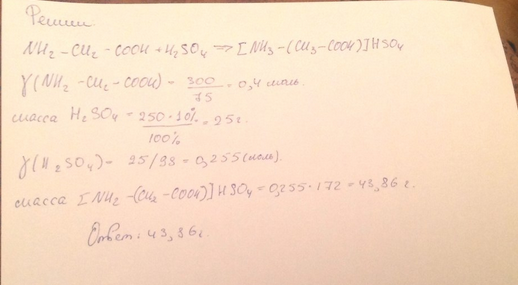 Решим
NH₂ – CH₂ – COOH + H₂SO₄ ⇒ [NH₃ – (CH₃ – COOH)]HSO₄
γ(NH₂ – CH₂ – COOH) = 300/75 = 0,4 моль.
масса H₂SO₄ = 250·10%/100% = 25 г.
γ(H₂SO₄) = 25/98 = 0,255 (моль).
масса [NH₂ – (CH₂ – COOH)]HSO₄ = 0,255·172 = 43,86 г.
Ответ: 43,36 г.